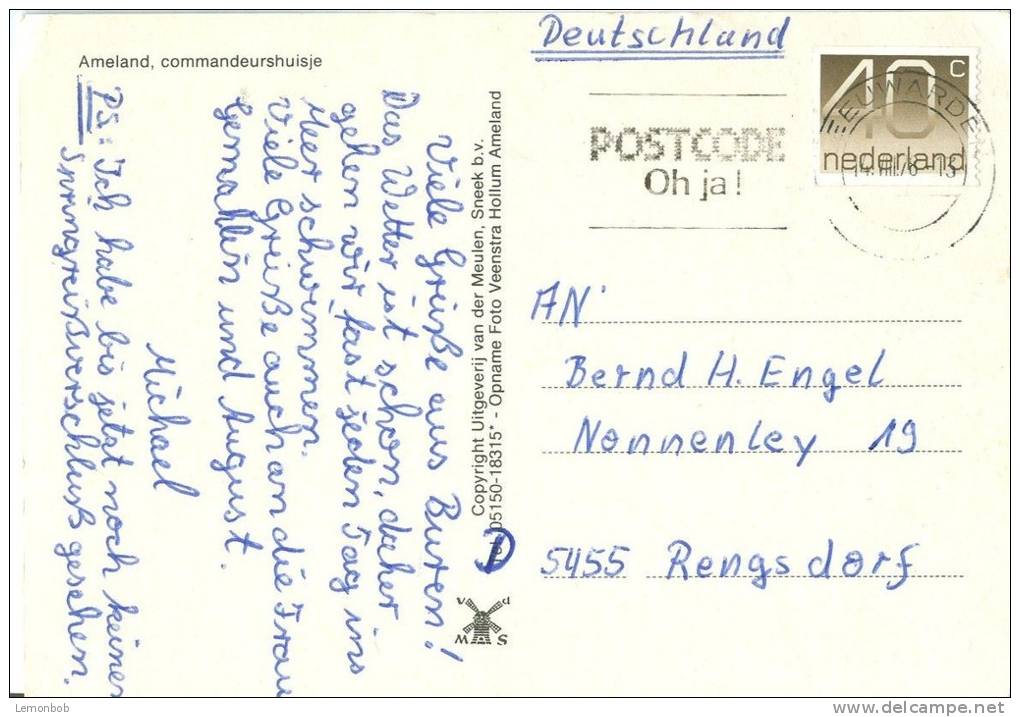 Ameland, commandeurshuisje
Viele Grüße aus Buren!
Das Wetter ist schön, daher
gehen wir fast jeden Tag ins
Meer schwimmen.
Viele Grüße auch an die Frau
Gemahlin und August.
Michael
PS: Ich habe bis jetzt noch keinen
Springreißverschluß gesehen.
Copyright Uitgeverij van der Meulen, Sneek b.v.
Tel. 05150-18315* - Opname Foto Veenstra Hollum Ameland
v d
M S
Deutschland
POSTCODE
Oh ja!
40 c
nederland
EEUWARDE
AN
Bernd H. Engel
Nonnenley 19
5455 Rengsdorf
Lemonbob
www.delcampe.net